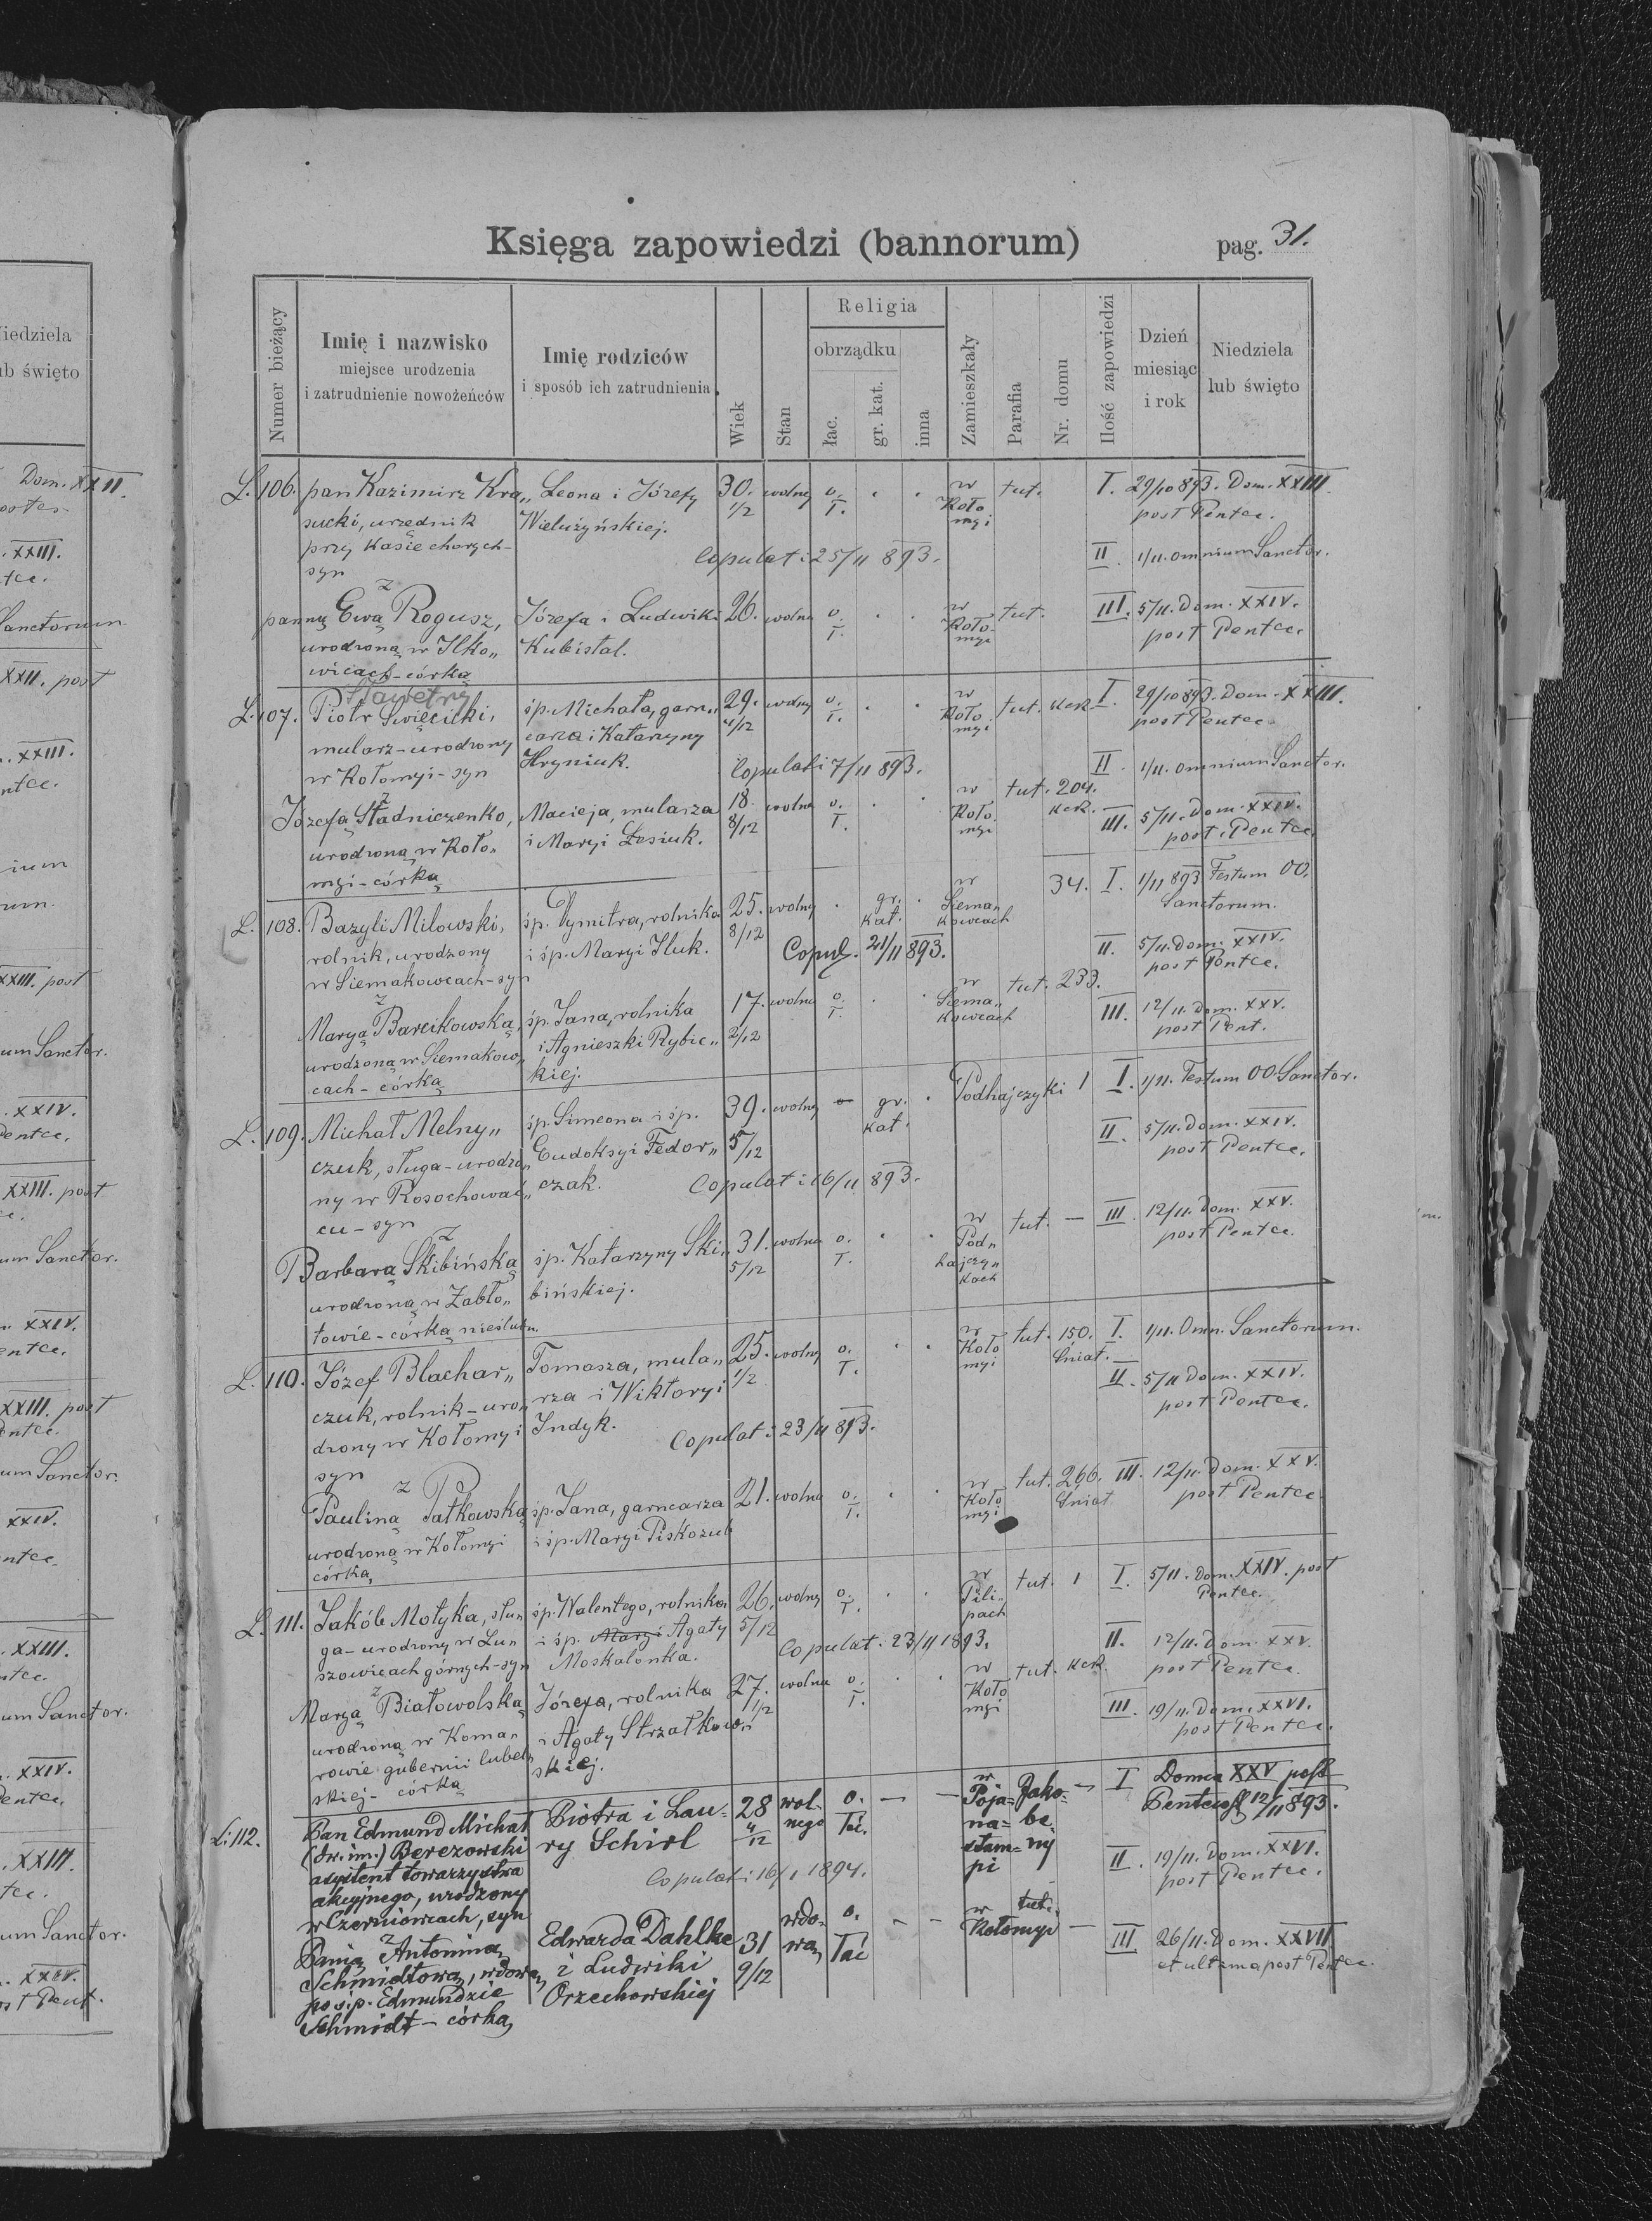 Księga zapowiedzi (bannorum)
pag. 31.
Numer bieżący
Imię i nazwisko
miejsce urodzenia
i zatrudnienie nowożeńców
Imię rodziców
i sposób ich zatrudnienia
Wiek
Stan
Religia
obrządku
łac.
gr. kat.
inna
Zamieszkały
Parafia
Nr. domu
Ilość zapowiedzi
Dzień
miesiąc
i rok
Niedziela
lub święto
L. 106. pan Kazimirz Kra„ Leona i Józefy 30. wolny o. . . w tut. I. 29/10 893. Dom. XXIII.
sucki, urzędnik Wielużyńskiej. 1/2 ł. Koło post Pentec.
przy Kasie chorych- myi
syn Copulat: 25/11 893. II 1/11. omnium Sanctor.
z
panną Ewą Rogusz, Józefa i Ludwiki 26. wolna o. . . w tut. III. 5/11. Dom. XXIV.
urodzoną w Ilko„ Kubistal. ł. Koło- post Pentec.
wicach-córką myi
Sławetny
L. 107. Piotr Święcicki, śp. Michała, garn„ 29. wolny o. . . w tut. kck I. 29/10 893. Dom. XXIII.
mularz-urodzony carza i Katarzyny 4/12 ł. Koło post Pentec.
w Kołomyi-syn Hryniuk. myi
Copulati 7/11 893. II. 1/11. omnium Sanctor.
z
Józefą Stadniczenko, Macieja, mularza 18. wolna o. . . w tut. 204. III. 5/11. Dom. XXIV.
urodzoną w Koło„ i Maryi Łesiuk. 8/12 ł. Koło kck. post. Pentec.
myi-córką myi
L. 108. Bazyli Milowski, śp. Dymitra, rolnika 25. wolny . gr. . w 34. I. 1/11 893 Festum OO.
rolnik, urodzony i śp. Maryi Iluk. 8/12 kat. Sieman Sanctorum.
w Siemakowcach-syn kowcach
Copul. 21/11 893. II. 5/11. Dom. XXIV.
post Pentec.
z
Maryą Barcikowską, śp. Jana, rolnika 17. wolna o. . . w tut. 233. III. 12/11. Dom. XXV.
urodzoną w Siemakow„ i Agnieszki Rybic„ 2/12 ł. Siema„ post Pent.
cach-córką kiej. kowcach
L. 109. Michał Melny„ śp. Simeona i śp. 39. wolny o gr. . Podhajczyki 1 I. 1/11. Festum OO. Sanctor.
czuk, sługa-urodzo„ Eudoksyi Fedor„ 5/12 kat. II. 5/11. Dom. XXIV.
ny w Rosochować„ czak. post Pentec.
cu-syn Copulat: 16/11 893.
z
Barbarą Skibińską śp. Katarzyny Ski„ 31. wolna o. . . w tut. — III. 12/11. Dom. XXV.
urodzoną w Zabło„ bińskiej. 5/12 ł. Pod„ post Pentec.
towie-córką nieślubn. hajczy„
kach
L. 110. Józef Blachar„ Tomasza, mula„ 25. wolny o. . . w tut. 150. I. 1/11. Omn. Sanctorum.
czuk, rolnik-uro„ rza i Wiktoryi 1/2 ł. Koło Śniat. II. 5/11 Dom. XXIV.
dzony w Kołomyi Indyk. myi post Pentec.
syn Copulat: 23/11 893.
z
Pauliną Patkowską śp. Jana, garncarza 21. wolna o. . . w tut. 266. III. 12/11. Dom. XXV.
urodzoną w Kołomyi i śp. Maryi Piskozub ł. Koło Śniat. post Pentec.
córką, myi
L. 111. Jakób Motyka, słu„ śp. Walentego, rolnika 26. wolny o. . . w tut. 1 I. 5/11. Dom. XXIV. post
ga-urodzony w Lu„ i śp. Maryi Agaty 5/12 ł. Pili„ Pentec.
szowicach górnych-syn Moskalonka. pach
Copulat: 23/11 1893. II. 12/11. Dom. XXV.
post Pentec.
z
Maryą Białowolską Józefa, rolnika 27. wolna o. . . w tut. kck. III. 19/11. Dom. XXVI.
urodzoną w Koma„ i Agaty Strzałkow„ 1/2 ł. Koło post Pentec.
rowie gubernii lubel„ skiej. myi
skiej- córką
L: 112. Pan Edmund Michał Piotra i Lau= 28 wol- o. — — w Jako= — I Domca XXV post
(dw. im.) Berezowski ry Schirl 4/12 nego łać. Poja= be= Pentecost 12/11 893.
asystent towarzystwa na= ny
akcyjnego, urodzony stam= II. 19/11. Dom. XXVI.
w Czerniowcach, syn pi post Pentec.
Copulati 16/1 1894.
z
Panią Antoniną Edwarda Dahlke 31 wdo- o. — — w tut. — III 26/11. Dom. XXVII
Schmidtową, wdową i Ludwiki 9/12 wa, łać Kołomyi et ultima post Pentec.
po śp. Edmundzie Orzechowskiej
Schmidt- córką,